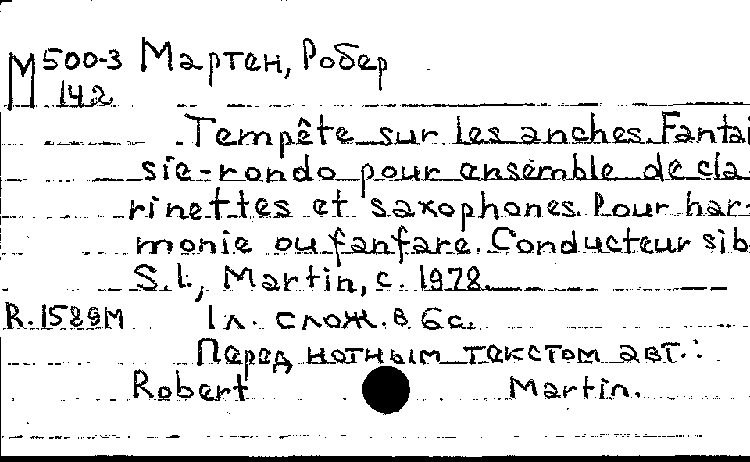 М 500-3 Мартен, Робер
142
Tempête sur les anches. Fantai
sie-rondo pour ensemble de cla-
rinettes et saxophones. Pour har-
monie ou fanfare. Conducteur sib.
S.l., Martin, c. 1978.
R.1589М 1 л. слож. в 6 с.
Перед нотным текстом авт.:
Robert Martin.